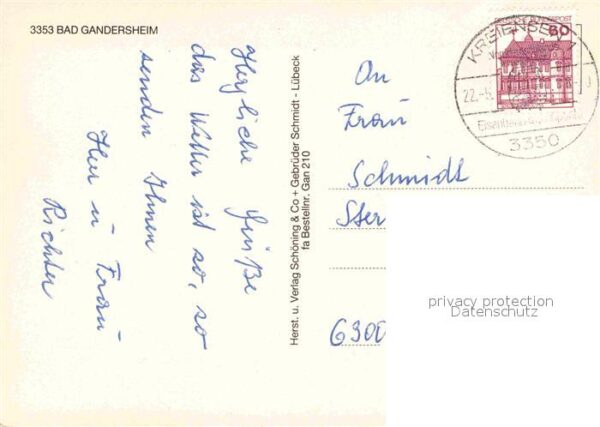 3353 BAD GANDERSHEIM
Herzliche Grüße
das Wetter ist so, so
senden Ihnen
Herr u Frau
Richter
Herst. u. Verlag Schöning & Co + Gebrüder Schmidt - Lübeck
fa Bestellnr. Gan 210
An
Frau
Schmidt
Ster
6300
60
KREIENSEN 1
22.-
3350
privacy protection
Datenschutz